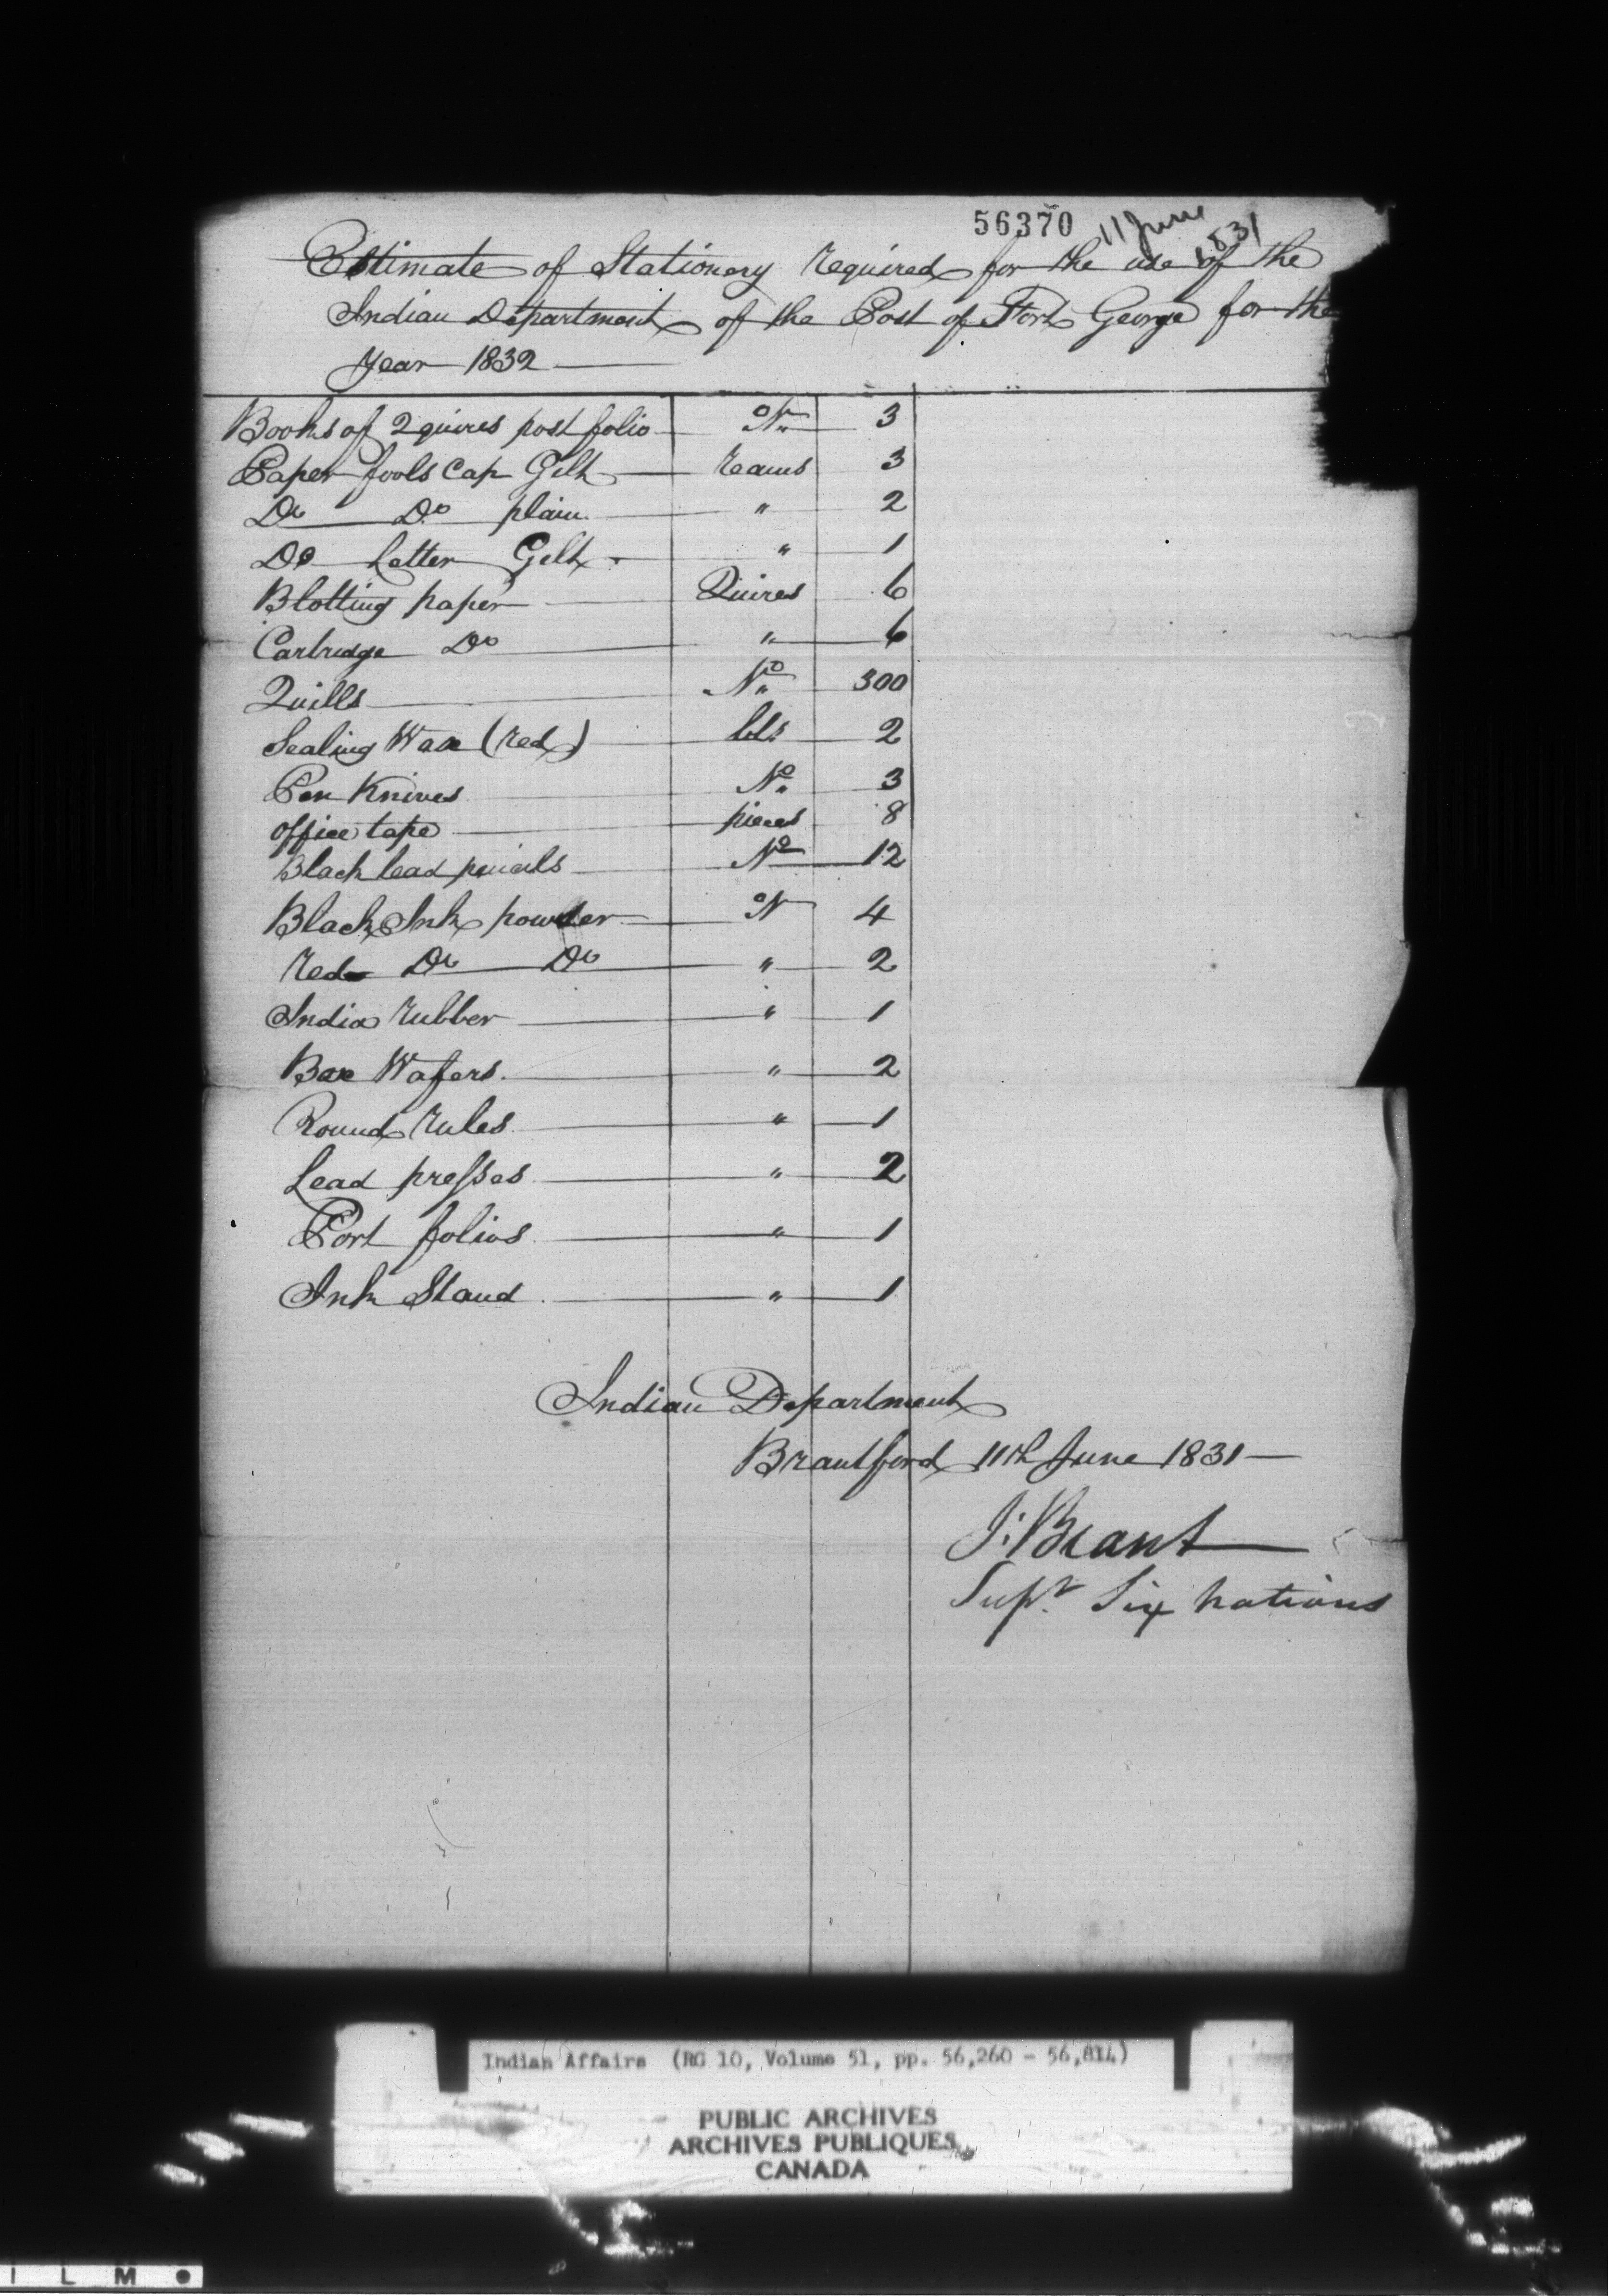 56370 11 June 1831
Estimate of Stationery required for the use of the
Indian Department of the Post of Fort George for the
Year 1832
Books of 2 quires post folio No 3
Paper fools cap Gilt reams 3
Do Do plain " 2
Do Letter Gilt " 1
Blotting paper Quires 6
Cartridge Do " 6
Quills No 300
Sealing Wax (red) lbs 2
Pen Knives No 3
Office tape pieces 8
Black lead pencils No 12
Black Ink powder No 4
Red Do Do " 2
India rubber " 1
Box Wafers " 2
Round rules " 1
Lead presses " 2
Port folios " 1
Ink Stand " 1
Indian Department
Brantford 11th June 1831
J. Brant
Supt Six nations
Indian Affairs (RG 10, Volume 51, pp. 56,260 - 56,814)
PUBLIC ARCHIVES
ARCHIVES PUBLIQUES
CANADA
I L M